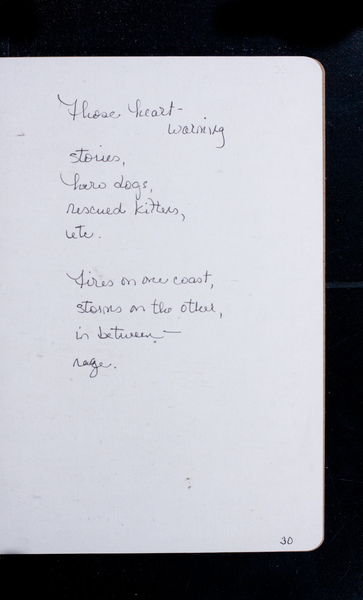 Those heart-
warming
stories,
hero dogs,
rescued kittens,
etc.
Fires on one coast,
storms on the other,
in between—
rage.
30